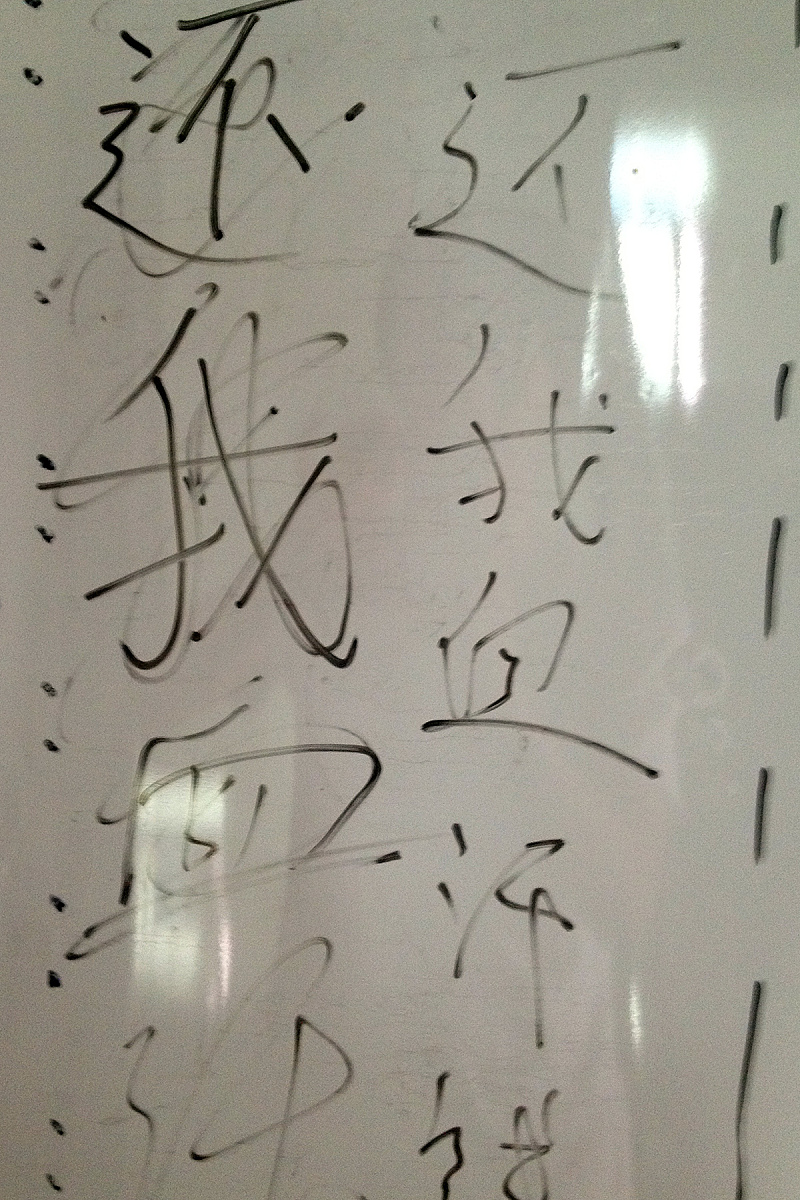 还我血汗钱
还我血